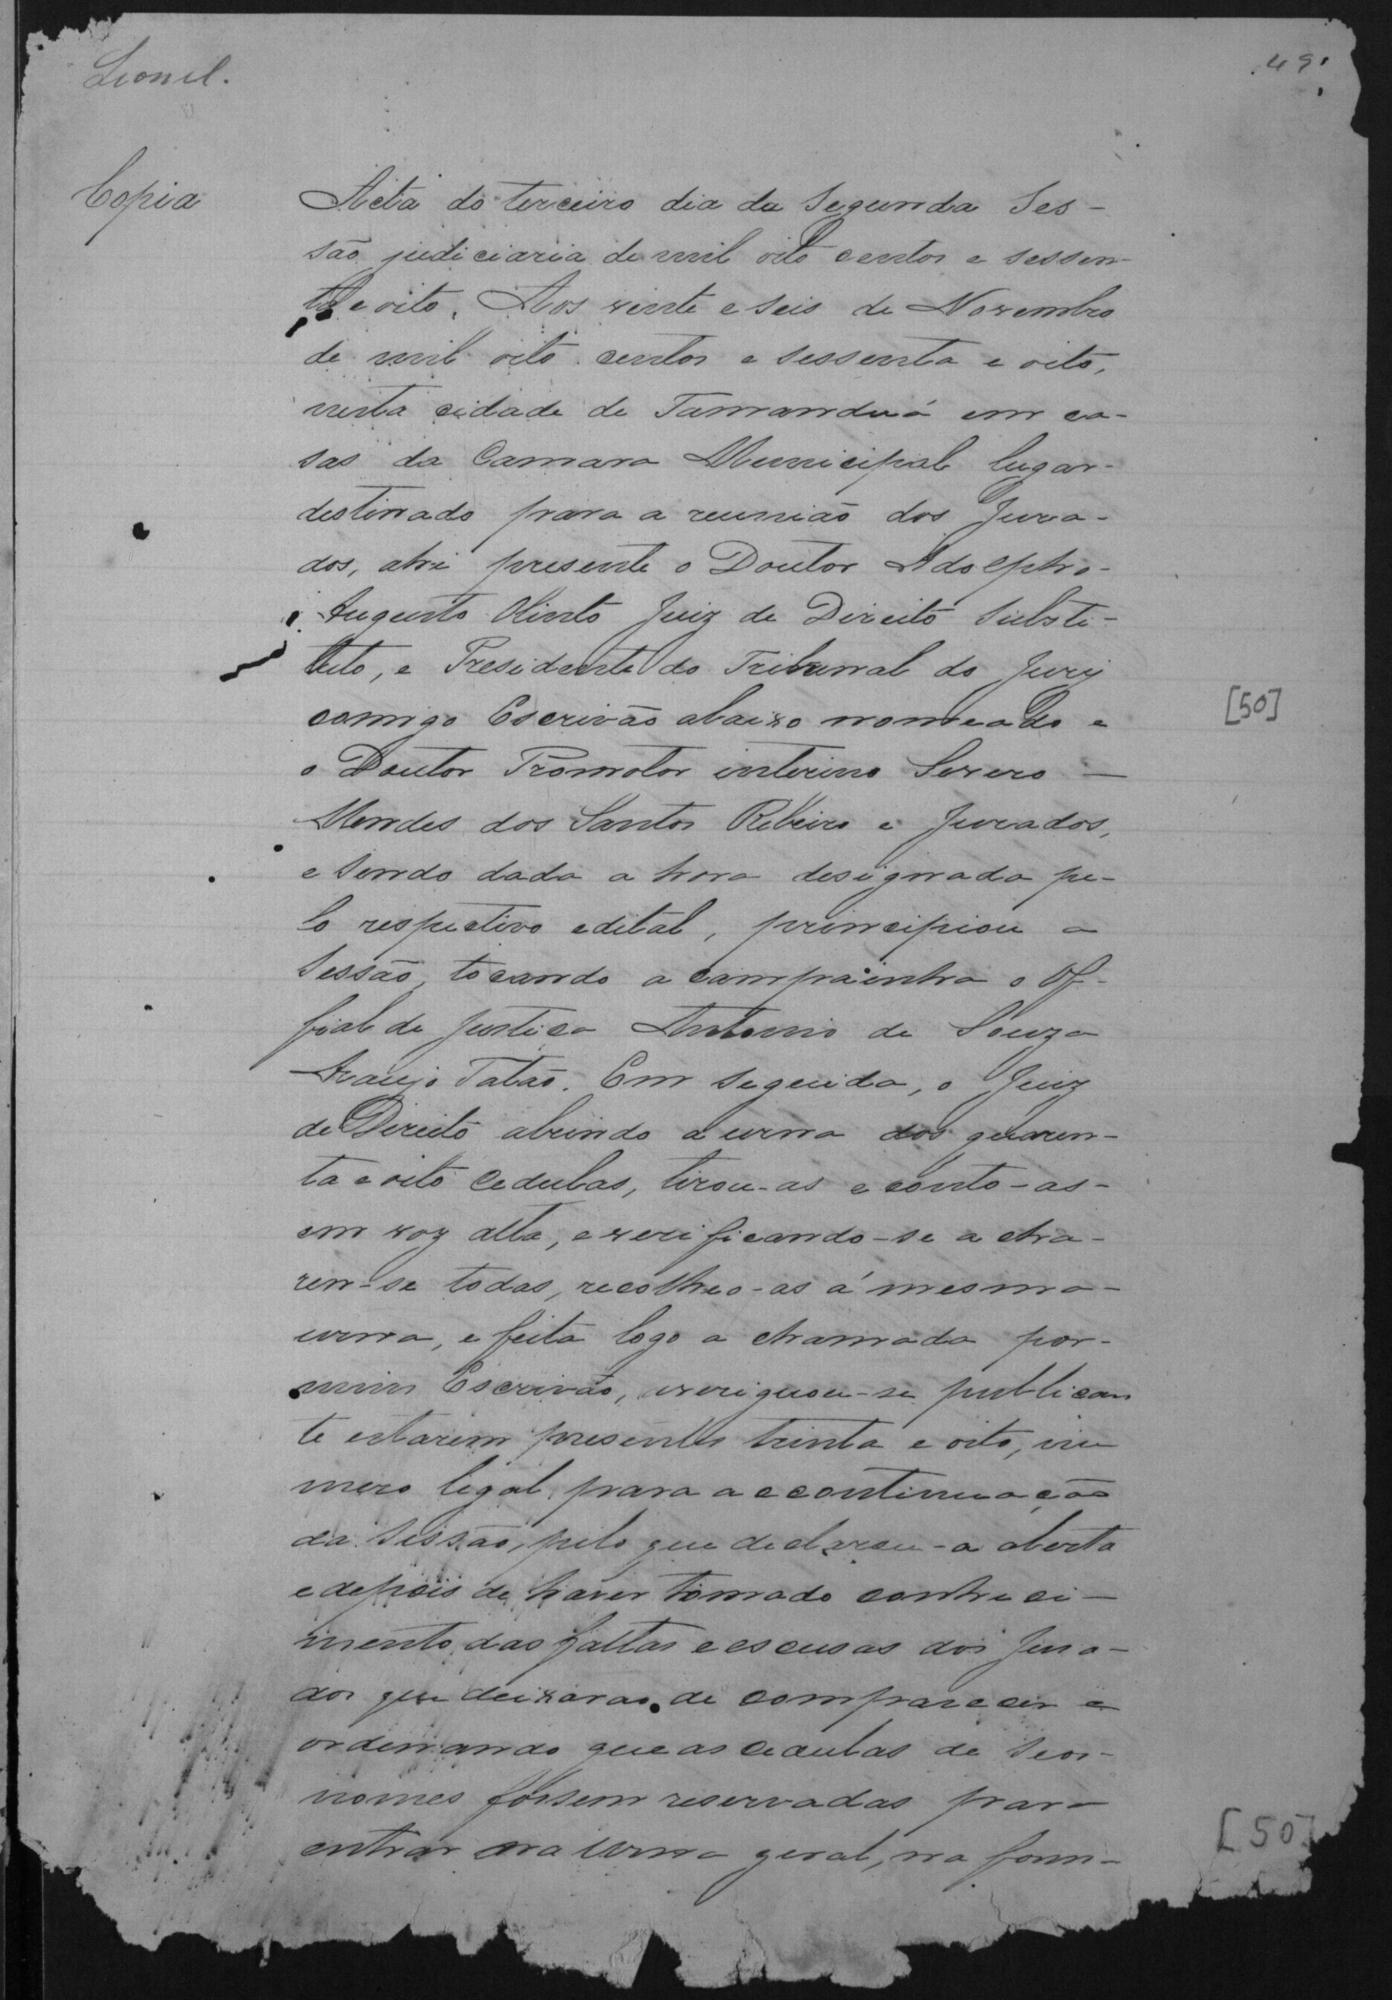 Leonel.
49
Copia
Acta do terceiro dia da Segunda Ses-
são judiciaria de mil oito centos e sessen-
ta e oito. Aos vinte e seis de Novembro
de mil oito centos e sessenta e oito,
nesta cidade de Tamanduá em ca-
sas da Camara Municipal lugar
destinado para a reunião dos Jura-
dos, ahi presente o Doutor Adolpho
Augusto Olinto Juiz de Direito Substi-
tuto, e Presidente do Tribunal do Jury
comigo Escrivão abaixo nomeado e
o Doutor Promotor interino Severo
Mendes dos Santos Ribeiro e Jurados,
e sendo dada a hora designada pe-
lo respectivo edital, principiou a
Sessão, tocando a campainha o Of-
ficial de Justiça Antonio de Souza
Araujo Tatão. Em seguida, o Juiz
de Direito abrindo a urna dos quaren-
ta e oito cedulas, tirou-as e conto-as-
em voz alta, e verificando-se acha-
ren-se todas, recolheo-as á mesma
urna, e feita logo a chamada por-
mim Escrivão, averiguou-se publicam
te estarem presentes trinta e oito, nu
mero legal para a continuação
da Sessão, pelo que declarou-a aberta
e depois de haver tomado conheci-
mento das faltas e escusas dos Jura-
dos que deixarao de comparecer e
ordenando que as cedulas de seos-
nomes fossem reservadas para
entrar na urna geral, na form-
[50]
[50]